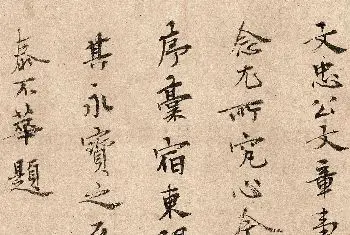 文忠公文章事
尤所究心
序藁宿東
其永寶之
泰不華題